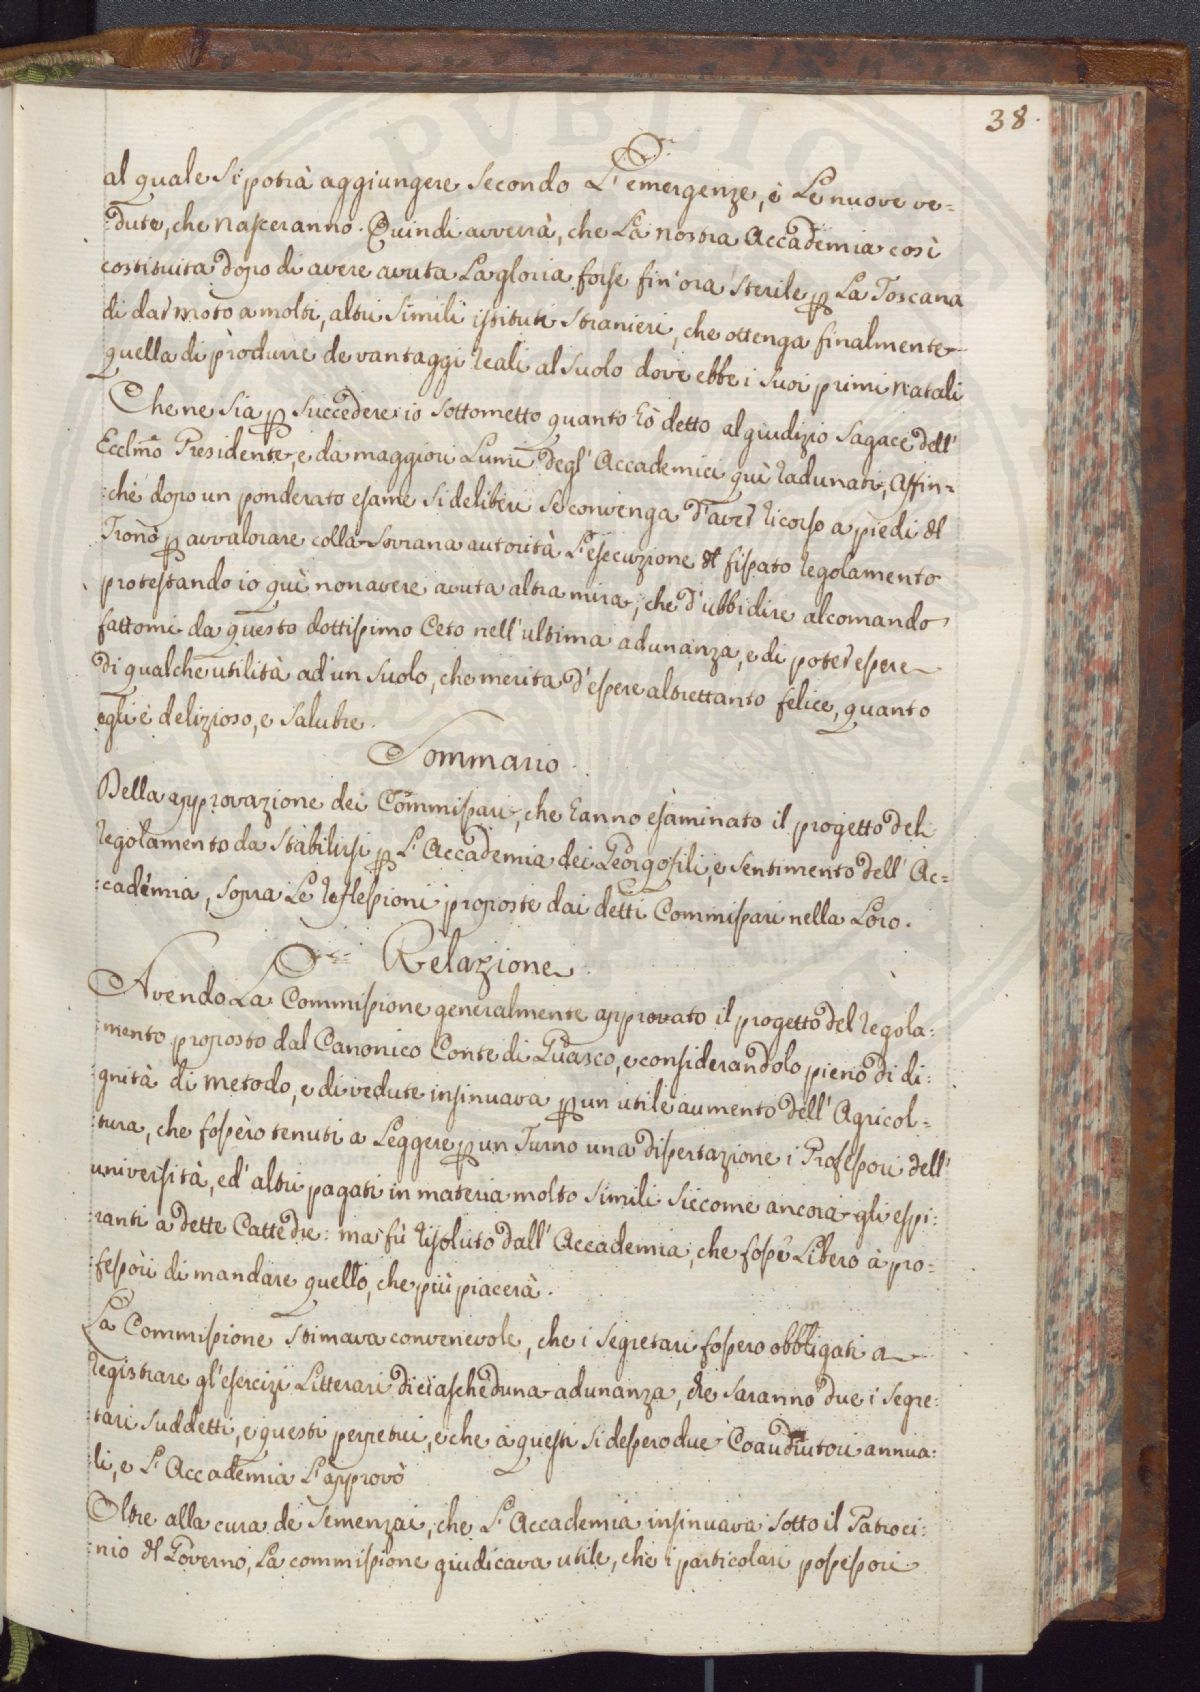 38.
al quale si potrà aggiungere secondo L'emergenze, e Le nuove ve=
:dute, che nasceranno. Quindi avverrà, che La nostra Accademia così
costituita dopo di avere avuta La gloria forse fin'ora sterile p La Toscana
di dar moto a molti, altri simili istituti stranieri, che ottenga finalmente
quella di produrre de vantaggi reali al suolo dove ebbe i suoi primi natali
Che ne sia p succedere io sottometto quanto hò detto al giudizio sagace dell'
Ecclmo Presidente, e da maggiori Lumi degl'Accademici quì radunati, Affin=
:chè dopo un ponderato esame si deliberi se convenga d'aver ricorso a piedi del
Trono p avvalorare colla Sovrana autorità L'esecuzione del fissato regolamento
protestando io quì non avere avuta altra mira, che d'ubbidire al comando
fattomi da questo dottissimo Ceto nell'ultima adunanza, e di poter essere
di qualche utilità ad un suolo, che merita d'essere altrettanto felice, quanto
egli è delizioso, e salubre.
Sommario.
Della approvazione dei Commissari, che hanno esaminato il progetto del
regolamento da stabilirsi p L'Accademia dei Georgofili, e sentimento dell'Ac=
:cadémia, sopra Le reflessioni proposte dai detti Commissari nella Loro.
Relazione
Avendo La Commissione generalmente approvato il progetto del regola:
:mento proposto dal Canonico Conte di Guasco, e considerandolo pieno di di:
:gnità di metodo, e di vedute insinuava p un utile aumento dell'Agricol=
:tura, che fossero tenuti a Leggere p un Turno una dissertazione i Professori dell'
università, ed'altri pagati in materia molto simili siccome ancora gli aspi:
:ranti a dette Cattedre: ma fù risoluto dall'Accademia, che fosse Libero à pro=
:fessori di mandare quello, che più piacerà.
La Commissione stimava convenevole, che i segretari fossero obbligati a
registrare gl'esercizi Litterari di ciascheduna adunanza, che saranno due i Segre:
:tari suddetti, e questi perpetui, e che a questi si dessero due Coaudiutori annua:
:li, e L'Accademia L'approvò
Oltre alla cura de semenzai, che L'Accademia insinuava sotto il Patroci:
:nio del Governo, La commissione giudicava utile, che i particolari possessori